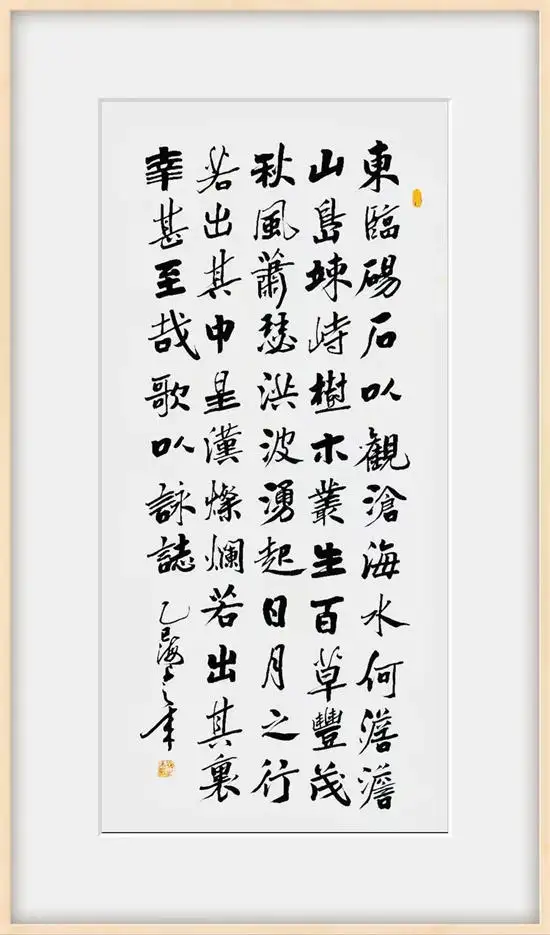 東臨碣石以觀滄海水何澹澹
山島竦峙樹木叢生百草豐茂
秋風蕭瑟洪波湧起日月之行
若出其中星漢燦爛若出其裏
幸甚至哉歌以詠誌
乙巳海